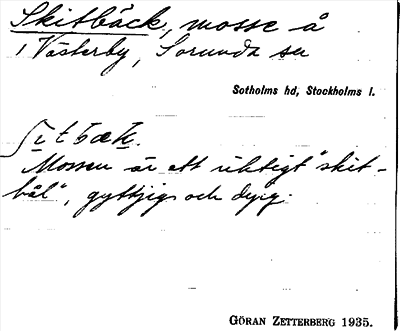 Skitbäck, mosse å
i Västerby, Sorunda sn
Sotholms hd, Stockholms l.
ʃi̱tbæk.
Mossen är ett riktigt "skit-
hål", gyttjig och dyig.
GÖRAN ZETTERBERG 1935.